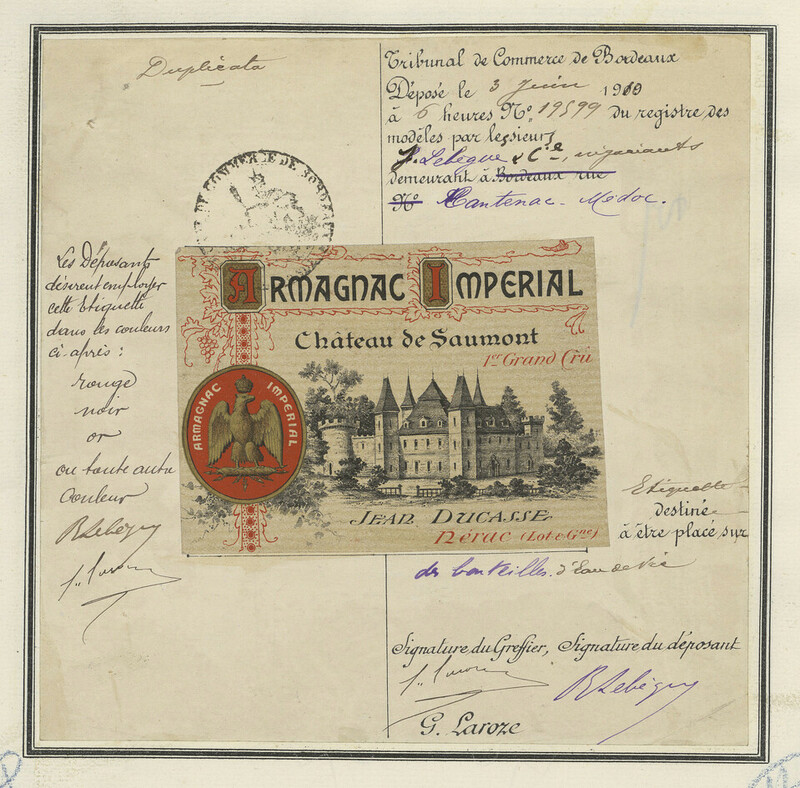 Duplicata
Tribunal de Commerce de Bordeaux
Déposé le 3 Juin 1910
à 6 heures Nº 19599 du registre des
modèles par les sieurs
J. Lebègue & Cie, négociants
demeurant à Bordeaux rue
Nº Cantenac-Médoc.
DE COMMERCE DE BORDEAUX
Les Déposants
désirent employer
cette Etiquette
dans les couleurs
ci-après :
rouge
noir
or
ou toute autre
Couleur
R Lebègue
ARMAGNAC IMPERIAL
Château de Saumont
1er Grand Crû
ARMAGNAC IMPERIAL
JEAN DUCASSE
Nérac (Lot-&-Gne)
Etiquette
destinée
à être placé sur
des bouteilles d'Eau de Vie
Signature du Greffier, Signature du déposant
R Lebègue
G. Laroze